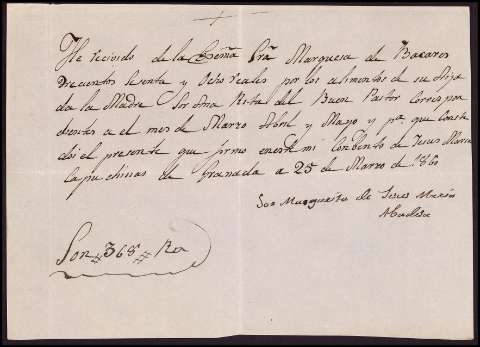 He recivido de la Exma Sra Marquesa de Bacares
Trecientos sesenta y Ocho reales por los alimentos de su Hija
da la Madre Sor Ana Rita del Buen Pastor Correspon
dientes a el mes de Marzo Abril y Mayo y pa. que Conste
doi el presente que firmo en este mi Conbento de Jesus Maria
Capuchinas de Granada a 25 de Marzo de 1860
Sor Margarita de Jesus Maria
Abadesa
Son # 368 # Rs